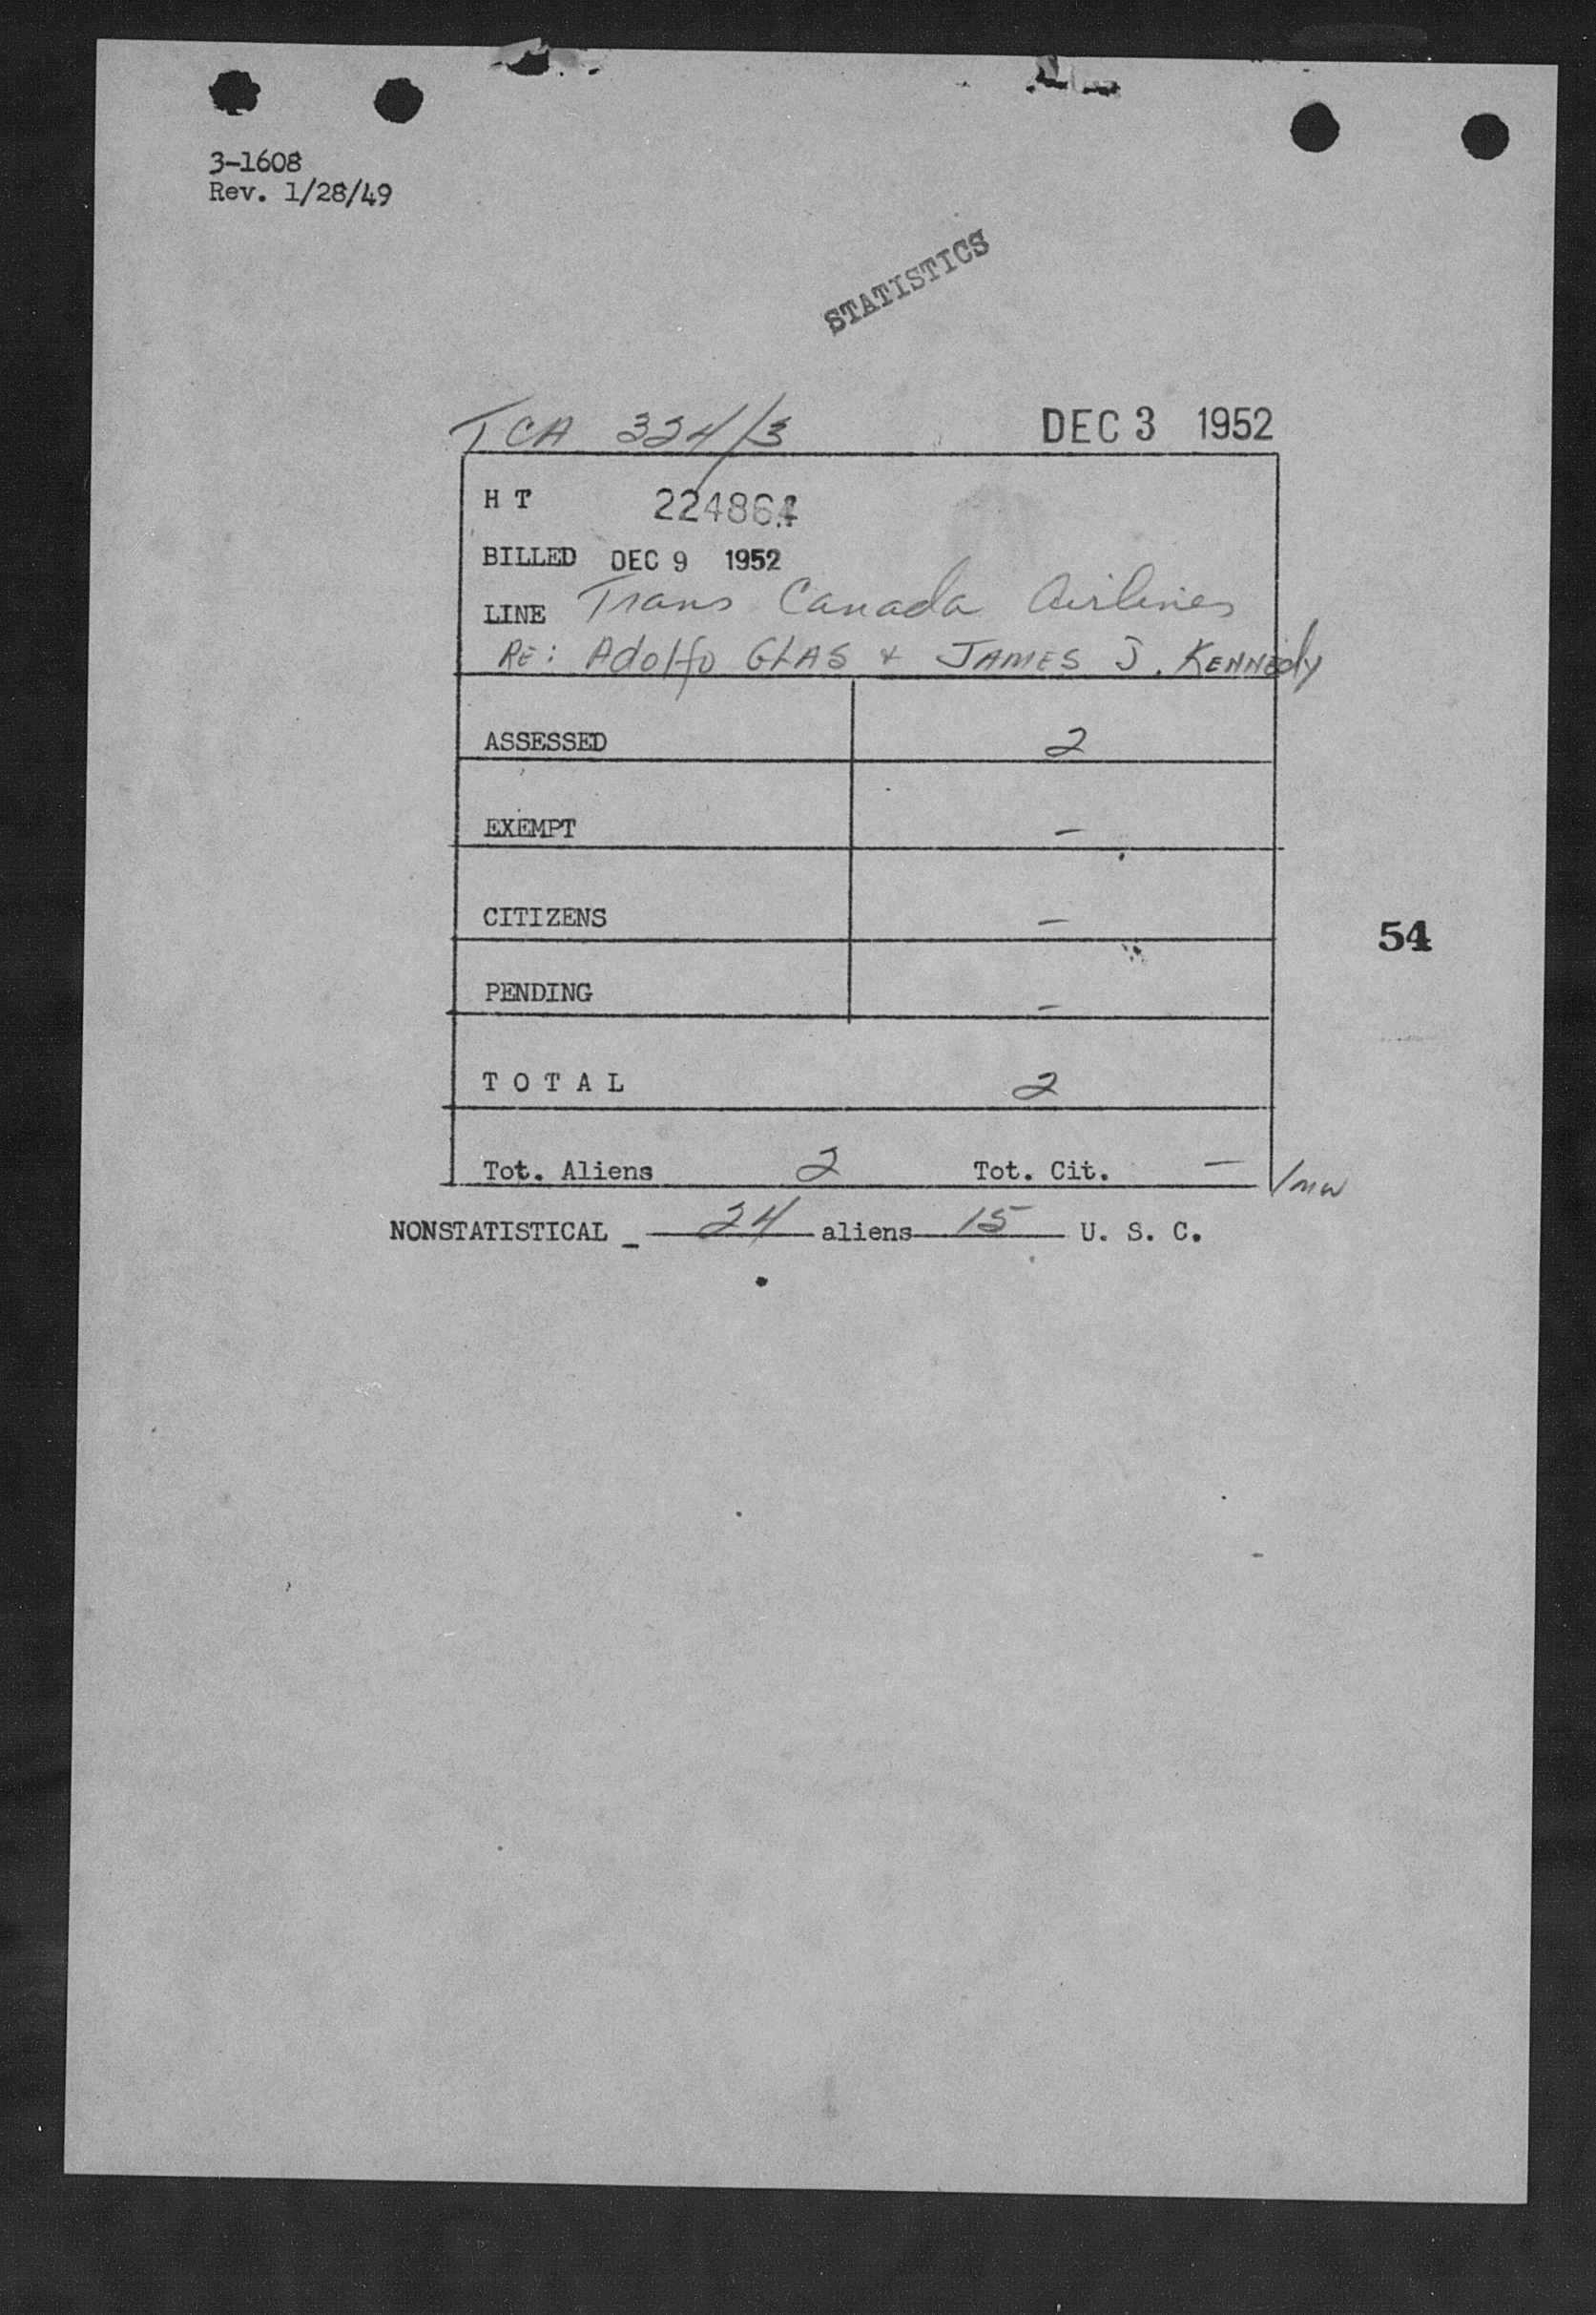 3-1608
Rev. 1/28/49
STATISTICS
TCA 334/3 DEC 3 1952
H T 224864
BILLED DEC 9 1952
LINE Trans Canada Airlines
RE: Adolfo GLAS + JAMES J. KENNEdy
ASSESSED 2
EXEMPT –
CITIZENS –
54
PENDING –
T O T A L 2
Tot. Aliens 2 Tot. Cit. –
NONSTATISTICAL - 24 aliens 15 U. S. C.